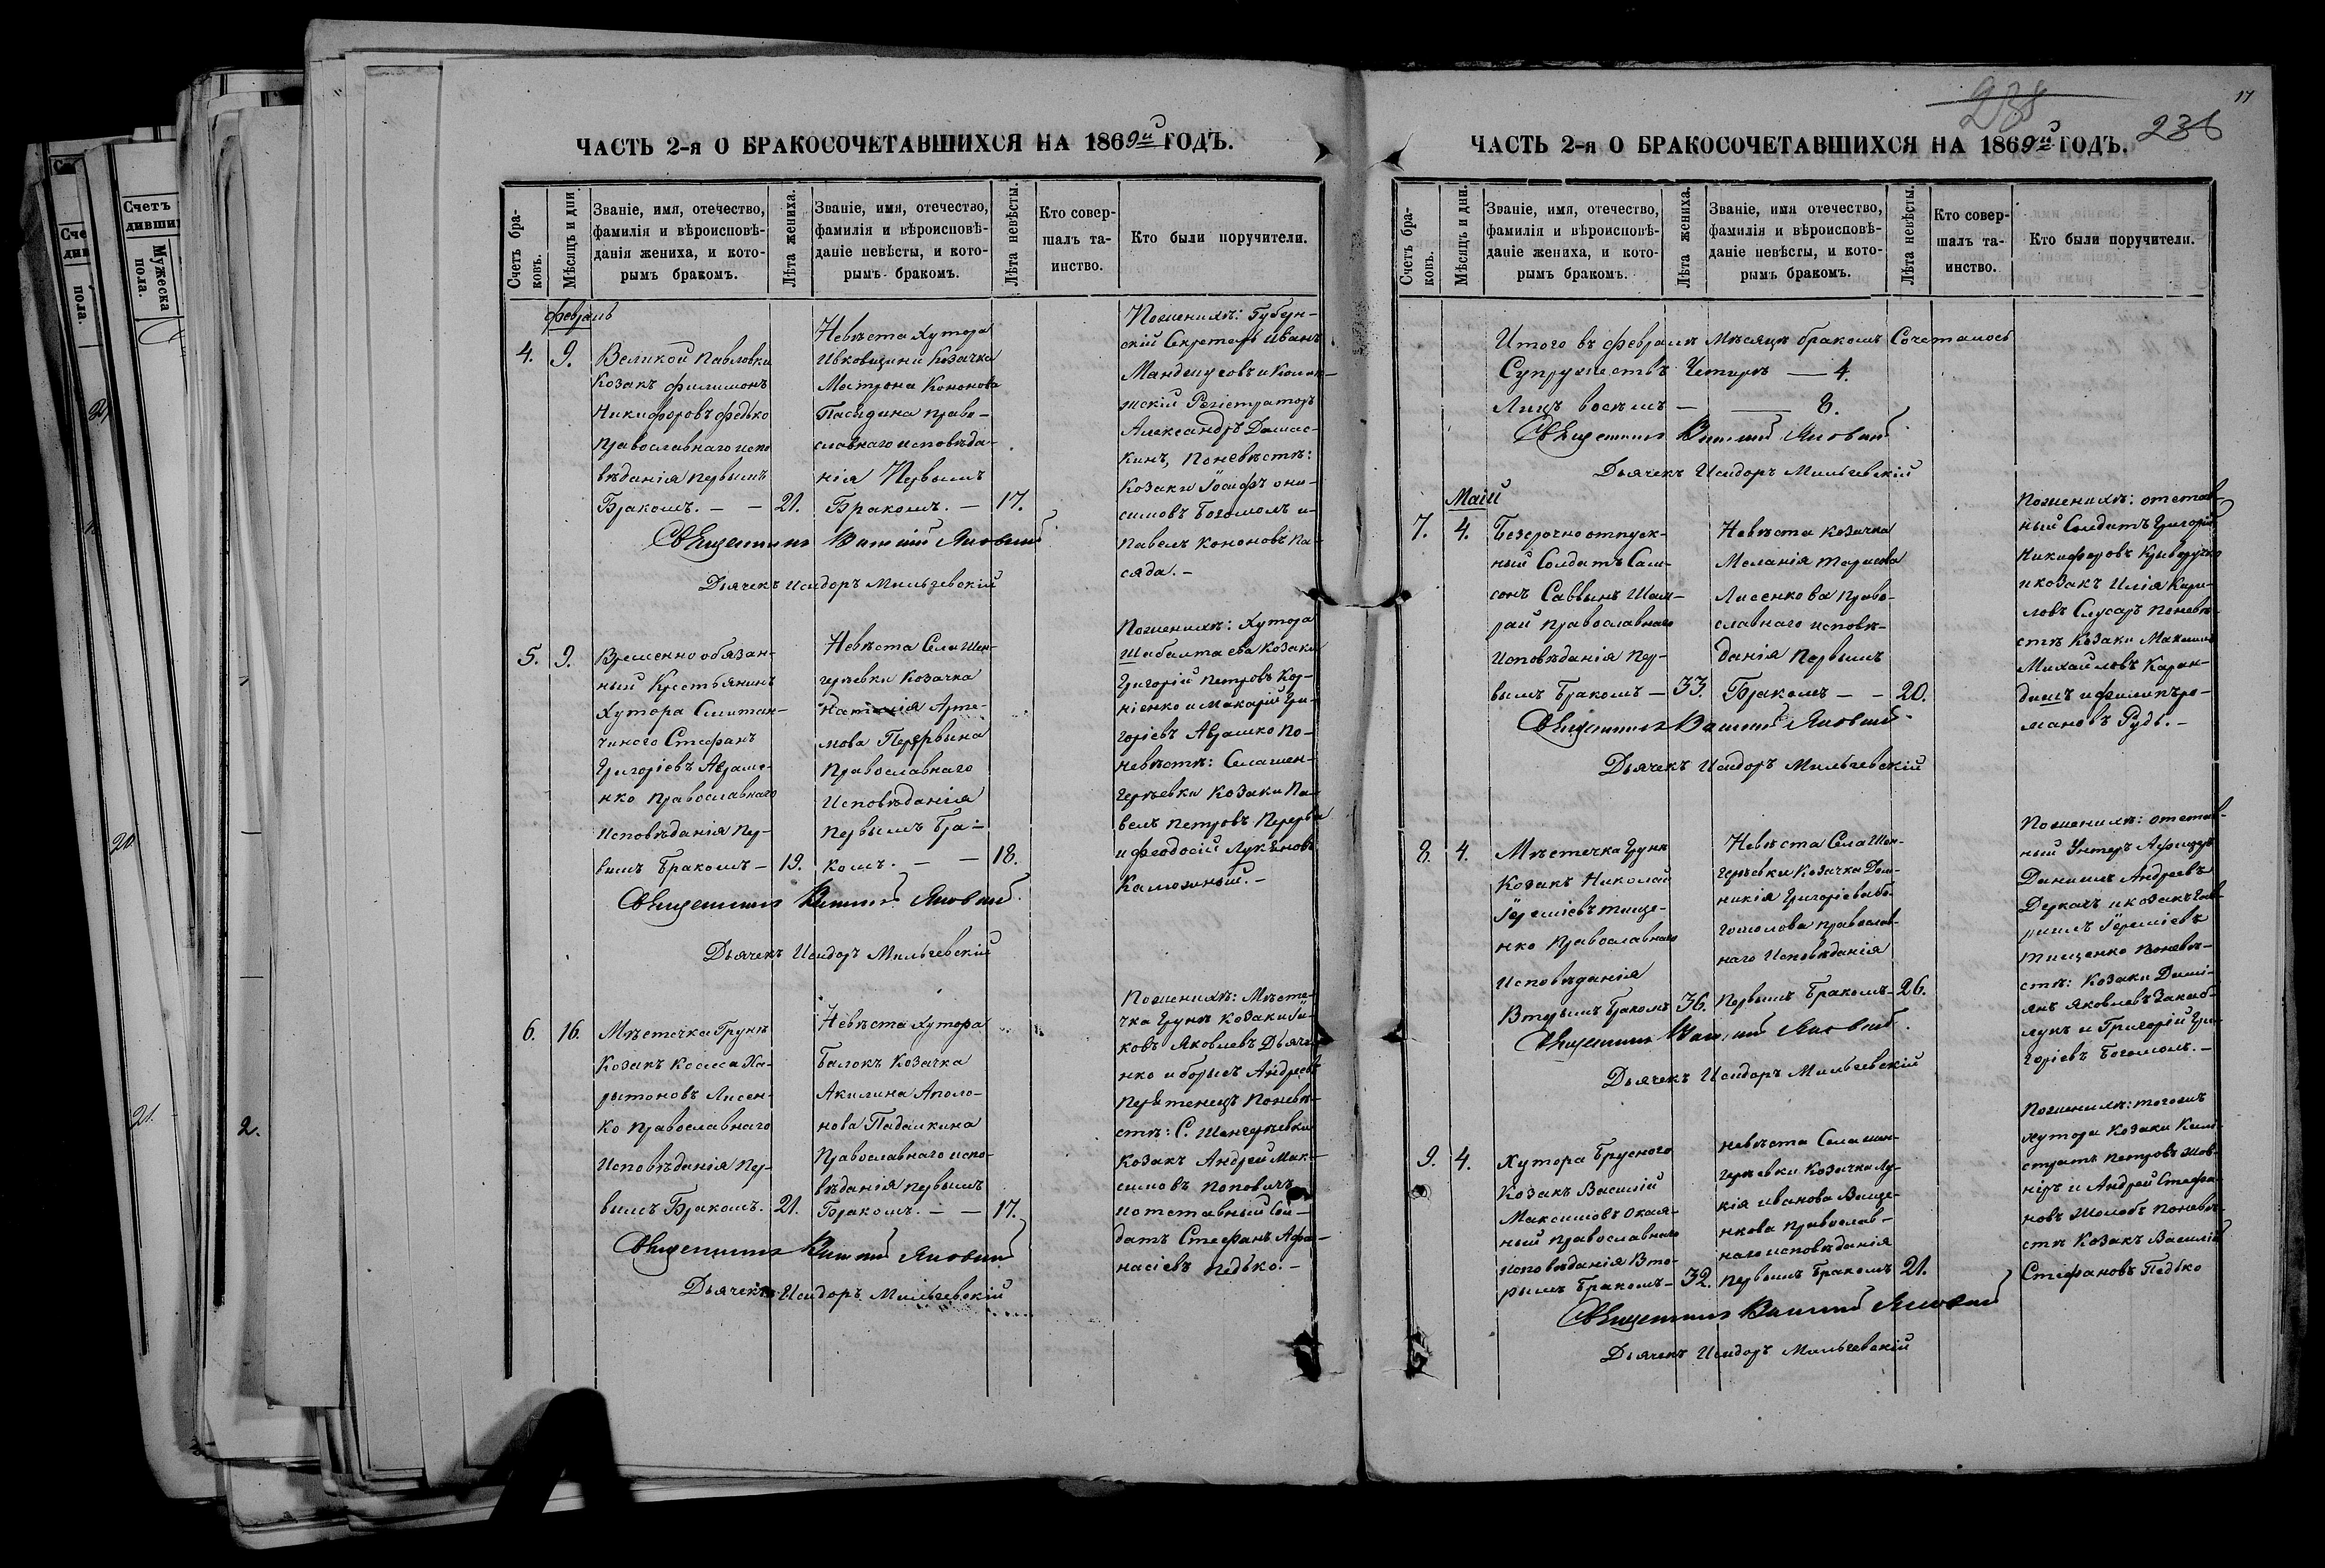 ЧАСТЬ 2-я О БРАКОСОЧЕТАВШИХСЯ НА 1869й ГОДЪ.
Счетъ бра-
ковъ.
Мѣсяцъ и дни.
Званіе, имя, отечество,
фамилія и вѣроисповѣ-
данія жениха, и кото-
рымъ бракомъ.
Лѣта жениха.
Званіе, имя, отечество,
фамилія и вѣроисповѣ-
даніе невѣсты, и кото-
рымъ бракомъ.
Лѣта невѣсты.
Кто совер-
шалъ та-
инство.
Кто были поручители.
февраль
4.
9.
Великой Павловки
Козакъ Филимонъ
Никифоровъ Федько
православнаго испо
вѣданія первымъ
Бракомъ. — —
21.
Невѣста Хутора
Ивковщини Козачка
Матрона Кононова
Пасядина право-
славнаго исповѣда-
нія Первымъ
Бракомъ. —
17.
Поженихѣ: Губерн-
скій Секретарь Иванъ
Александръ
Поневѣстѣ:
Козаки Іосифъ Они-
симовъ Богомолъ и
Павелъ Кононовъ Па-
сяда. —
Священникъ Яновскій
Дьячекъ Исидоръ Мильгевскій
5.
9.
Временнообязан-
ный Крестьянинъ
Хутора
Стефанъ
Григоріевъ Аврame-
нко Православнаго
Исповѣданія Пер-
вымъ Бракомъ —
19.
Невѣста Села Шен-
геръевки Козачка
Наталія Арте-
мова Перервина
Православнаго
Исповѣданія
первымъ Бра-
комъ. — —
18.
Поженихѣ: Хутора
Шабалтаева Козаки
Григорій Петровъ Кор-
ніенко и Макарій Гри-
горіевъ Аврашко По-
невѣстѣ: Села Шен-
геръевки Козаки Па-
велъ Петровъ Перерва
и Феодосій Лукьяновъ
Калюжный. —
Священникъ Яновскій
Дьячекъ Исидоръ Мильгевскій
6.
16.
Мѣстечка Груня
Козакъ Косма Ха-
ритоновъ Лисен-
ко Православнаго
Исповѣданія Пер-
вымъ Бракомъ.
21.
Невѣста Хутора
Балокъ Козачка
Акилина Аполо-
нова Падалкина
Православнаго испо-
вѣданія первымъ
Бракомъ. — —
17.
Поженихѣ: Мѣсте-
чка Груня Козаки Iа-
ковъ Яковлевъ Дьяче-
нко и Борисъ Андреевъ
Поневѣ-
стѣ: С. Шенгерѣевки
Козакъ Андрей Мак-
симовъ Поповичъ
и отставный Сол-
датъ Стефанъ Афа-
насіевъ Педько. —
Священникъ Яновскій
Дьячекъ Исидоръ Мильгевскій
17
238
236
ЧАСТЬ 2-я О БРАКОСОЧЕТАВШИХСЯ НА 1869й ГОДЪ.
Счетъ бра-
ковъ.
Мѣсяцъ и дни.
Званіе, имя, отечество,
фамилія и вѣроисповѣ-
даніе жениха, и кото-
рымъ бракомъ.
Лѣта жениха.
Званіе, имя отечество,
фамилія и вѣроисповѣ-
даніе невѣсты, и кото-
рымъ бракомъ.
Лѣта невѣсты.
Кто совер-
шалъ та-
инство.
Кто были поручители.
Итого въ февралѣ мѣсяцѣ бракомъ Сочеталось
Супружествъ Четыре — 4.
Лицъ восемь — — 8.
Священникъ Яновскій
Дьячекъ Исидоръ Мильгевскій
Май
7.
4.
Безсрочноотпуск-
ный Солдатъ Сам-
сонъ Саввинъ Шам-
рай Православнаго
Исповѣданія Пер-
вымъ Бракомъ —
33.
Невѣста Козачка
Меланія Тарасова
Лисенкова Право-
славнаго исповѣ-
данія Первымъ
Бракомъ — —
20.
Поженихѣ: отстав-
ный Солдатъ Григорій
Никифоровъ Криворучко
и козакъ Илія Кири-
ловъ Слусарь Поневѣ-
стѣ Козаки Максимъ
Михайловъ Каран-
дашъ и Филипъ Ро-
мановъ Рудь. —
Священникъ Яновскій
Дьячекъ Исидоръ Мильгевскій
8.
4.
Мѣстечка Груня
Козакъ Николай
Іереміевъ Тище-
нко Православнаго
Исповѣданія
Вторымъ Бракомъ
36.
Невѣста Села Шен-
геръевки Козачка Дом-
никія Григоріева Бо-
гомолова православ-
наго Исповѣданія
Первымъ Бракомъ —
26.
Поженихѣ: отстав-
ный Унтеръ Афицеръ
Даниилъ Андреевъ
Деркачъ и козакъ Гав-
риилъ Іереміевъ
Тищенко Поневѣ-
стѣ: Козаки Даміянъ Яковлевъ
и Григорій Гри-
горіевъ Богомолъ. —
Священникъ Яновскій
Дьячекъ Исидоръ Мильгевскій
9.
4.
Хутора Брусного
Козакъ Василій
Максимовъ Окая-
ный Православнаго
исповѣданія Вто-
рымъ Бракомъ —
32.
Невѣста Села Шен-
геръевки Козачка Лу-
кія Иванова Ваще-
нкова Православ-
наго исповѣданія
первымъ Бракомъ
21.
Поженихѣ: тогожъ
хутора Козаки
Петровъ
и Андрей Стефа-
новъ Поневѣ-
стѣ Козакъ Василій
Стефановъ Педько
Священникъ Яновскій
Дьячекъ Исидоръ Мильгевскій
Счетъ
дивши
Мужеска
пола.
20.
21.
2.